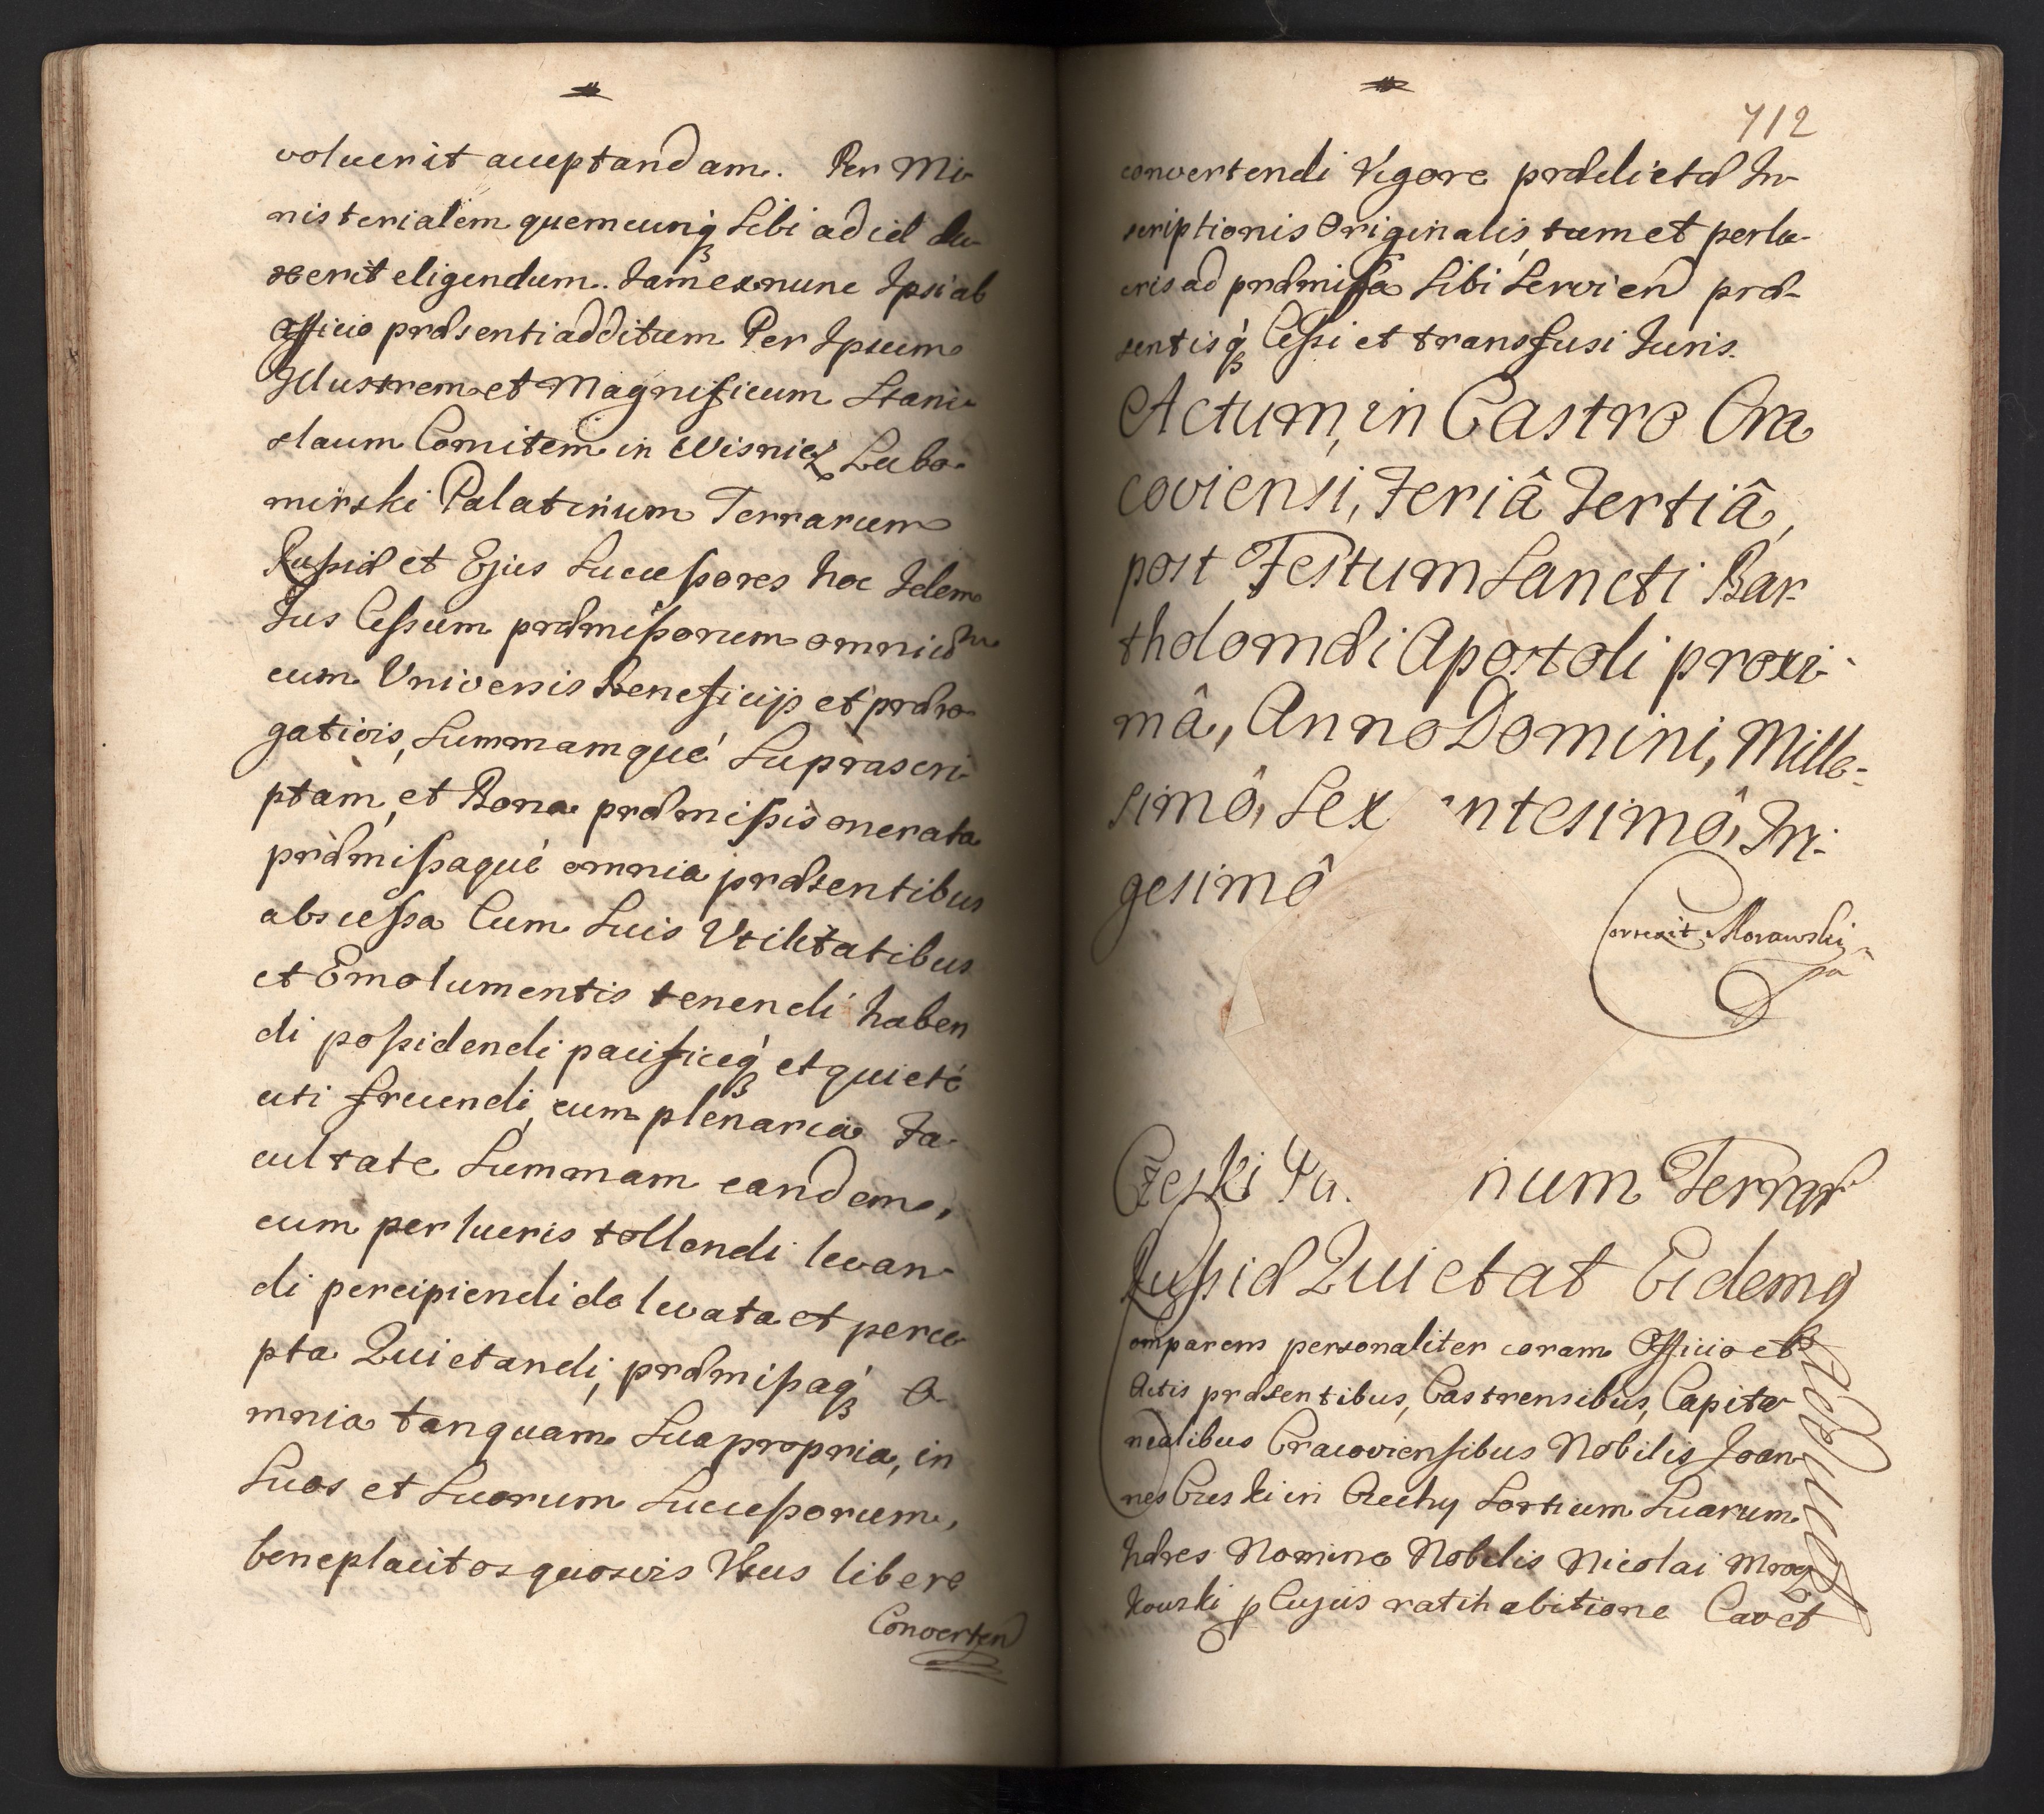 voluerit acceptandam. Per Mi-
nisterialem quemcunq₃ Sibi ad id du-
xerit eligendum. Jam ex nunc Ipsi ab
Officio præsenti additum Per Ipsum
Illustrem et Magnificum Stani-
slaum Comitem in Wisnicz Lubo-
mirski Palatinum Terrarum
Russiæ et Ejus Successores hoc Idem
Jus Cessum præmissorum omnium
cum Universis Beneficijs et præro-
gativis, Summamqué Suprascri-
ptam, et Bona præmissis onerata
præmissaqué omnia præsentibus
abscessa Cum Suis Vtilitatibus
et Emolumentis tenendi haben
di possidendi pacificeq₃ et quieté
uti fruendi, cum plenaria Fa-
cultate Summam eandem,
cum per lucris tollendi levan-
di percipiendi de levata et perce-
pta Quietandi, præmissaq₃ O-
mnia tanquam Sua propria, in
Suos et Suorum Successorum,
beneplacitos quosvis Vsus libere
Converten
712
convertendi Vigore prædictæ In-
scriptionis Originalis, tum et perlu-
cris ad præmissa Sibi Servien præ-
sentisq₃ Cessi et transfusi Juris.
Actum, in Castro Cra
coviensi, Feriâ Tertiâ,
post Festum Sancti Bar-
tholomæi Apostoli proxi-
mâ, Anno Domini, Mille-
simô, Sex ntesimô, Tri-
gesimô
Correxit Morawski
Czeski Pa num Terrar
Russiæ Quietat Eidemq
Comparens personaliter coram Officio et
Actis præsentibus, Castrensibus, Capita-
nealibus Cracoviensibus Nobilis Joan
nes Czeski in Czechy Sortium Suarum
hæres Nomine Nobilis Nicolai
kowski p Cujus ratihabitione Cavet